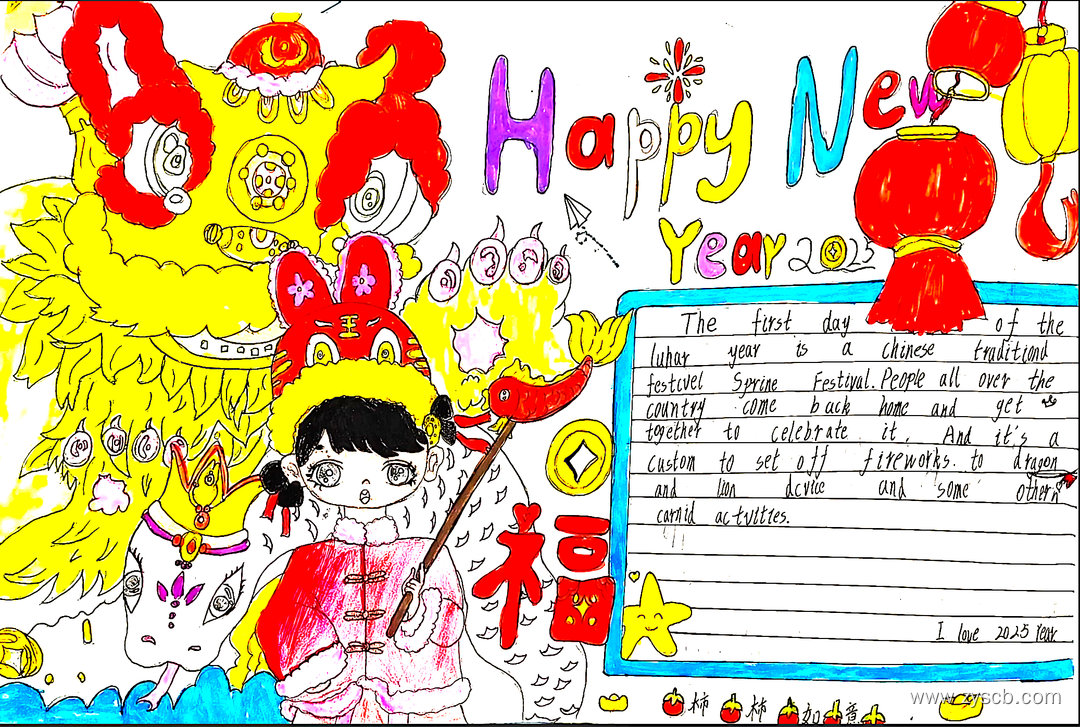 Happy New
Year 2025
The first day of the
lunar year is a chinese traditiond
festivel Sprine Festival. People all over the
country come back home and get
together to celebrate it. And it's a
custom to set off fireworks. to dragon
and lion dcvice and some othern
carnid actvities.
I love 2025 Year
福
柿 柿 如 意
www.zyscb.com